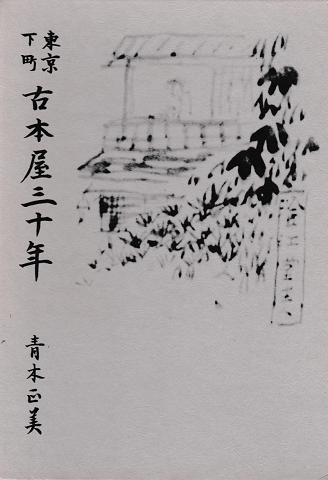 東京
下町
古本屋三十年
青木正美